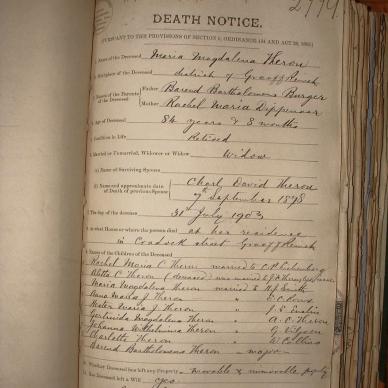 2779.
DEATH NOTICE.
(PURSUANT TO THE PROVISIONS OF SECTION
Name of the Deceased Maria Magdalena Theron
Birthplace of the Deceased district of Graaff Reinet
Names of the Parents of the Deceased
Father Barend Bartholomeus Burger
Mother Rachel Maria Dippenaar
Age of Deceased 84 years & 8 months
Condition in Life Retired
Married or Unmarried, Widower or Widow Widow
(a) Name of Surviving Spouse
(b) Name and approximate date of Death of previous Spouse Charl David Theron
September 1898
The day of the decease 31st July 1903
At what House or where the person died at her residence
in Cradock street Graaff Reinet
Names of the Children of the Deceased
Rachel Maria C Theron married to C P
Aletta C Theron (deceased) was married
Maria Magdalena Theron married to
Anna Maria J Theron "
Hester Maria J Theron "
Gertruida Magdalena Theron " Theron
Johanna Wilhelmina Theron " G Viljoen
Charlotte Theron " W Collins
Barend Bartholomeus Theron - major
Whether Deceased has left any Property movable & immovable property
Has Deceased left a Will yes